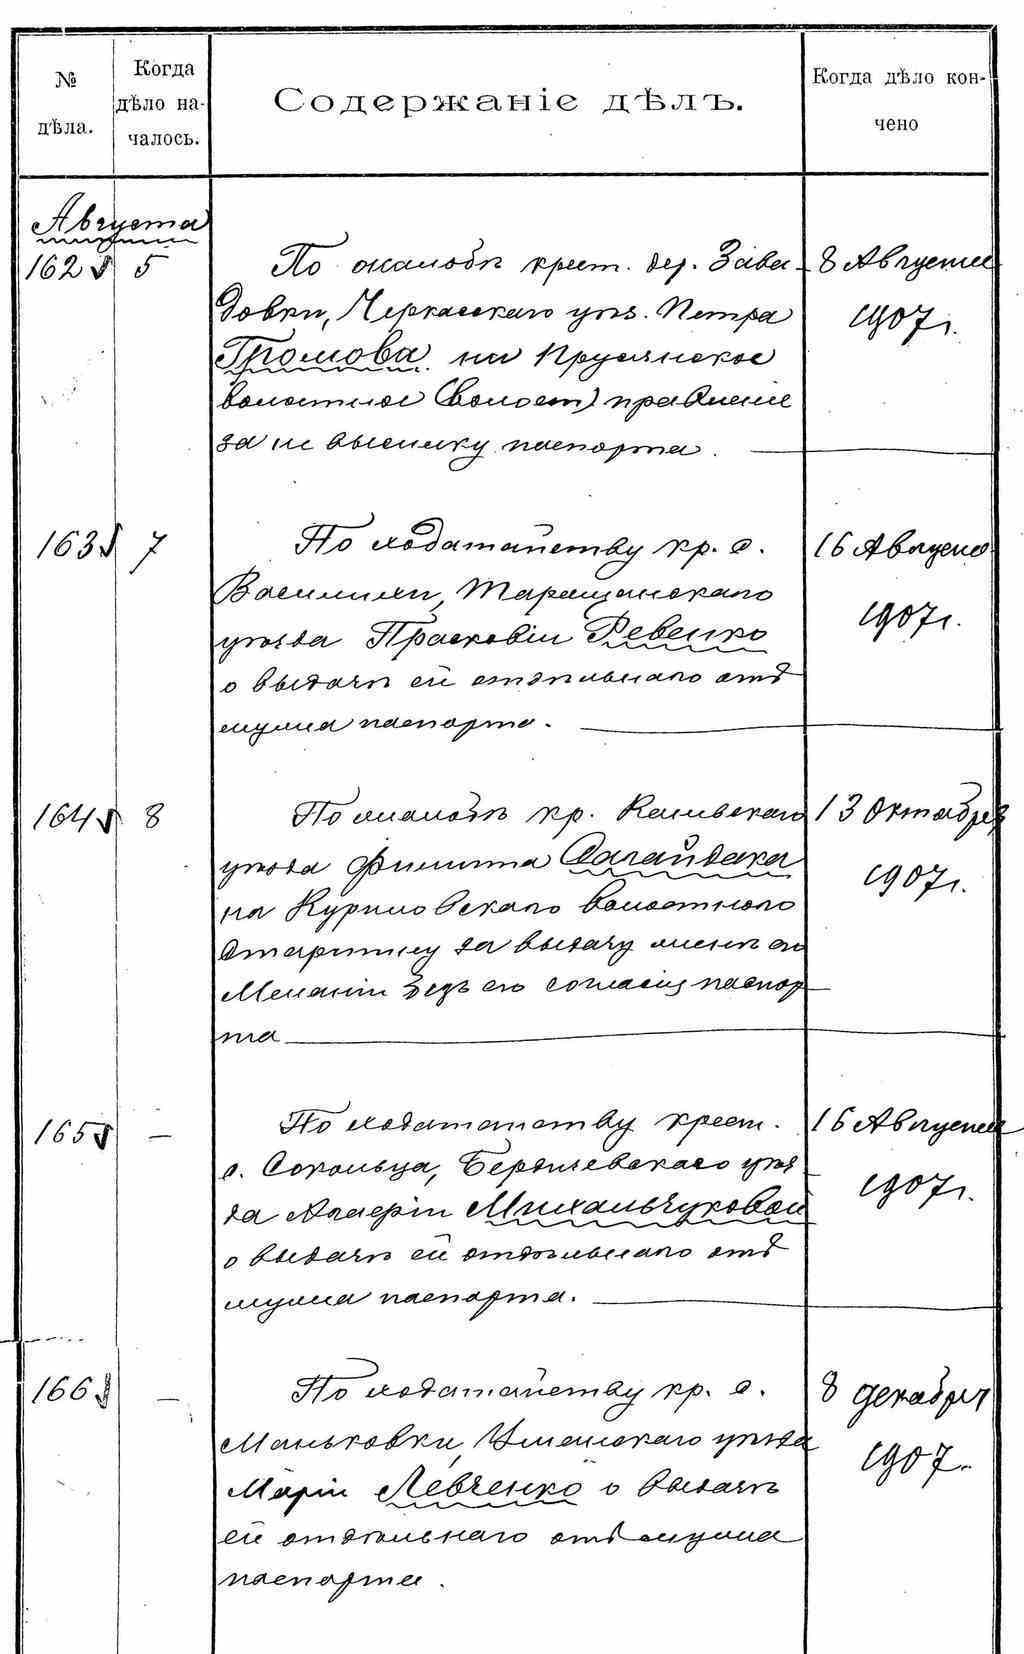 № дѣла.
Когда дѣло на-
чалось.
Содержаніе дѣлъ.
Когда дѣло кон-
чено
Августа
162 5 По жалобѣ крест. дер. Зава- 8 Августа
довки, Черкасскаго уѣз. Петра 1907 г.
Громова на Прусянское
волостное (волост) правленіе
за не высылку паспорта.
163 7 По ходатайству кр. с. 16 Августа
Василихи, Таращанскаго 1907 г.
уѣзда Прасковіи Ревенко
о выдачѣ ей отдѣльнаго отъ
мужа паспорта.
164 8 По жалобѣ кр. Каневскаго 13 Октября
уѣзда Филиппа Сагайдака 1907 г.
на Куриловскаго волостного
Старшину за выдачу женѣ его
Меланіи безъ его согласія паспор-
та
165 — По ходатайству крест. 16 Августа
с. Сокольца, Бердичевскаго уѣз- 1907 г.
да Михальчуковой
о выдачѣ ей отдѣльнаго отъ
мужа паспорта.
166 — По ходатайству кр. с. 8 декабря
Маньковки, Уманскаго уѣзда 1907.
Маріи Левченко о выдачѣ
ей отдѣльнаго отъ мужа
паспорта.